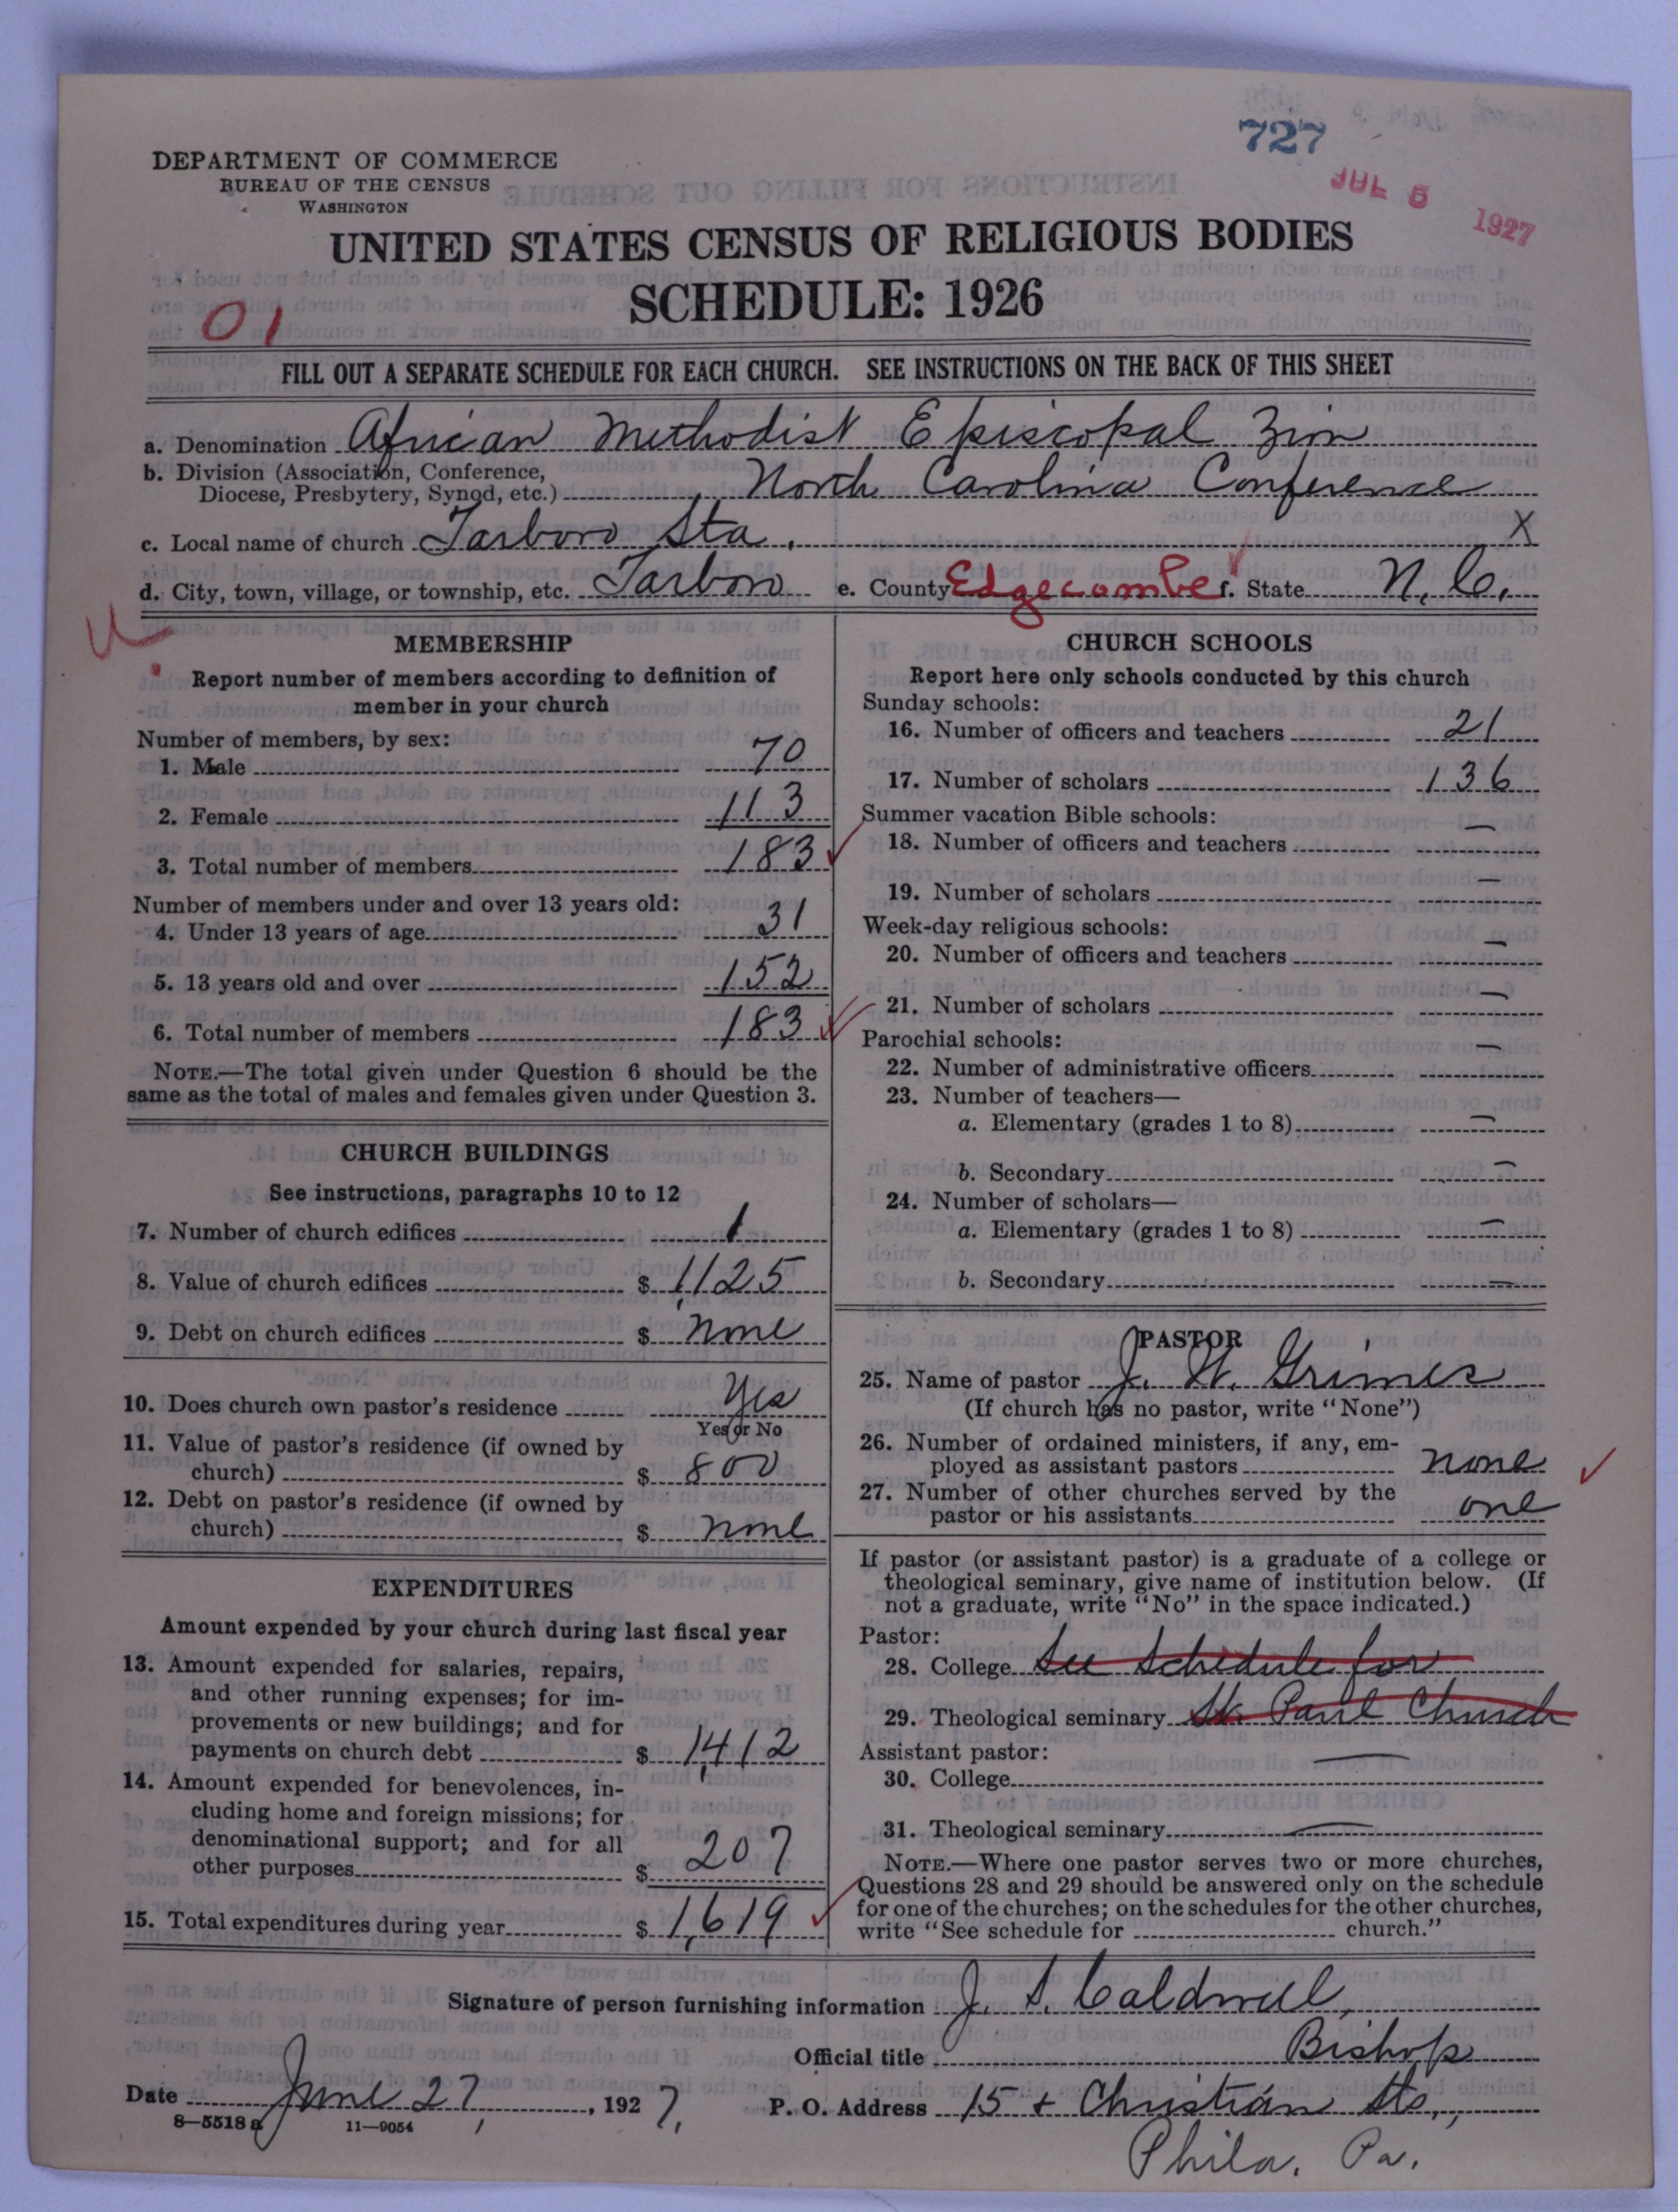 727
JUL 5 1927
DEPARTMENT OF COMMERCE
BUREAU OF THE CENSUS
WASHINGTON
UNITED STATES CENSUS OF RELIGIOUS BODIES
SCHEDULE: 1926
01
FILL OUT A SEPARATE SCHEDULE FOR EACH CHURCH. SEE INSTRUCTIONS ON THE BACK OF THIS SHEET
a. Denomination African Methodist Episcopal Zion
b. Division (Association, Conference,
Diocese, Presbytery, Synod, etc.) North Carolina Conference
c. Local name of church Tarboro Sta. X
d. City, town, village, or township, etc. Tarboro e. County Edgecombe f. State N. C.
MEMBERSHIP
Report number of members according to definition of
member in your church
Number of members, by sex:
1. Male 70
2. Female 113
3. Total number of members 183
Number of members under and over 13 years old:
4. Under 13 years of age 31
5. 13 years old and over 152
6. Total number of members 183
NOTE.—The total given under Question 6 should be the
same as the total of males and females given under Question 3.
CHURCH BUILDINGS
See instructions, paragraphs 10 to 12
7. Number of church edifices 1
8. Value of church edifices $ 1,125
9. Debt on church edifices $ none
10. Does church own pastor's residence Yes
Yes or No
11. Value of pastor's residence (if owned by
church) $ 800
12. Debt on pastor's residence (if owned by
church) $ none
EXPENDITURES
Amount expended by your church during last fiscal year
13. Amount expended for salaries, repairs,
and other running expenses; for im-
provements or new buildings; and for
payments on church debt $ 1,412
14. Amount expended for benevolences, in-
cluding home and foreign missions; for
denominational support; and for all
other purposes $ 207
15. Total expenditures during year $ 1,619
CHURCH SCHOOLS
Report here only schools conducted by this church
Sunday schools:
16. Number of officers and teachers 21
17. Number of scholars 136
Summer vacation Bible schools:
18. Number of officers and teachers —
19. Number of scholars —
Week-day religious schools:
20. Number of officers and teachers —
21. Number of scholars —
Parochial schools:
22. Number of administrative officers —
23. Number of teachers—
a. Elementary (grades 1 to 8) —
b. Secondary —
24. Number of scholars—
a. Elementary (grades 1 to 8) —
b. Secondary —
PASTOR
25. Name of pastor J. W. Grimes
(If church has no pastor, write "None")
26. Number of ordained ministers, if any, em-
ployed as assistant pastors none
27. Number of other churches served by the
pastor or his assistants one
If pastor (or assistant pastor) is a graduate of a college or
theological seminary, give name of institution below. (If
not a graduate, write "No" in the space indicated.)
Pastor:
28. College See Schedule for
29. Theological seminary St. Paul Church
Assistant pastor:
30. College —
31. Theological seminary —
NOTE.—Where one pastor serves two or more churches,
Questions 28 and 29 should be answered only on the schedule
for one of the churches; on the schedules for the other churches,
write "See schedule for church."
Signature of person furnishing information J. S. Caldwell,
Official title Bishop
Date June 27, 1927. P. O. Address 15 + Christian Sts.,
8-5518 a 11-9054
Phila. Pa.